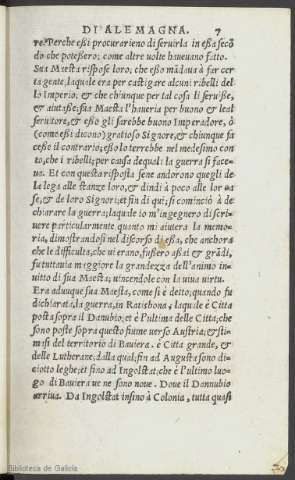 DI ALEMAGNA. 7
re. Perche eßi procurarieno di seruirla in eßa secõ
do che poteßero; come altre uolte haueuano fatto.
Sua Maesta rispose loro, che eßo mãdaua à far cer
ta gente, laquale era per castigare alcuni ribelli del
lo Imperio, & che chiunque per tal cosa li seruisse,
& aiutasse; sua Maesta l'haueria per buono & leal
seruitore, & eßo gli sarebbe buono Imperadore, ò
(come eßi dicono) gratioso Signore, & chiunque fa
cesse il contrario; eßo lo terrebbe nel medesimo con
to, che i ribelli; per causa dequali la guerra si face=
ua. Et con questa risposta sene andorono quegli de
la lega alle stanze loro, & dindi à poco alle lor ca
se, & de loro Signori; et fin di qui; si cominciò à de
chiarare la guerra; laquale io m'ingegnero di scri=
uere particularmente quanto mi aiutera la memo=
ria, dimostrandosi nel discorso di eßa, che anchora
che le difficulta, che ui erano, fussero aßai & grãdi,
fu tuttauia maggiore la grandezza dell'animo in=
uitto di sua Maesta; uincendole con la uiua uirtu.
Era adunque sua Maestà, come si è detto, quando fu
dichiarata, la guerra, in Ratisbona, laquale è Citta
posta sopra il Danubio, et è l'ultima delle Citta, che
sono poste sopra questo fiume uerso Austria; & sti=
masi del territorio di Bauiera. è Citta grande, &
delle Lutherane; dalla qual; fin ad Augusta sono di=
ciotto leghe; et fino ad Ingolstat; che è l'ultimo luo=
go di Bauiera ue ne sono noue. Doue il Dannubio
arriua. Da Ingolstat insino à Colonia, tutta quasi
Biblioteca de Galicia